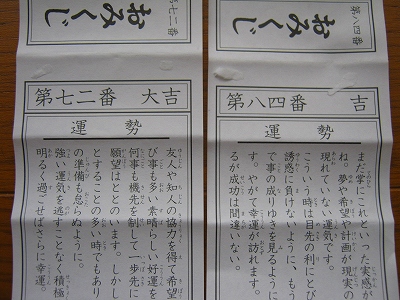 第八四番
おみくじ
第八四番 吉
運勢
まだ掌にこれといった実感が
ね。夢や希望や計画が現実の
現れていない運気です。
こういう時は目先の利にとび
誘惑に負けないように、もう
で事の成りゆきを見るように
す。やがて幸運が訪れます。
るが成功は間違いない。
七二番
おみくじ
第七二番 大吉
運勢
友人や知人の協力を得て希望
び事も多い素晴らしい好運を
何事も機先を制して一歩先に
願望はととのいます。しかし
とすることの多い時でもあり
の準備も怠らぬように。
強い運気を逃すことなく積極
明るく過ごせばさらに幸運。